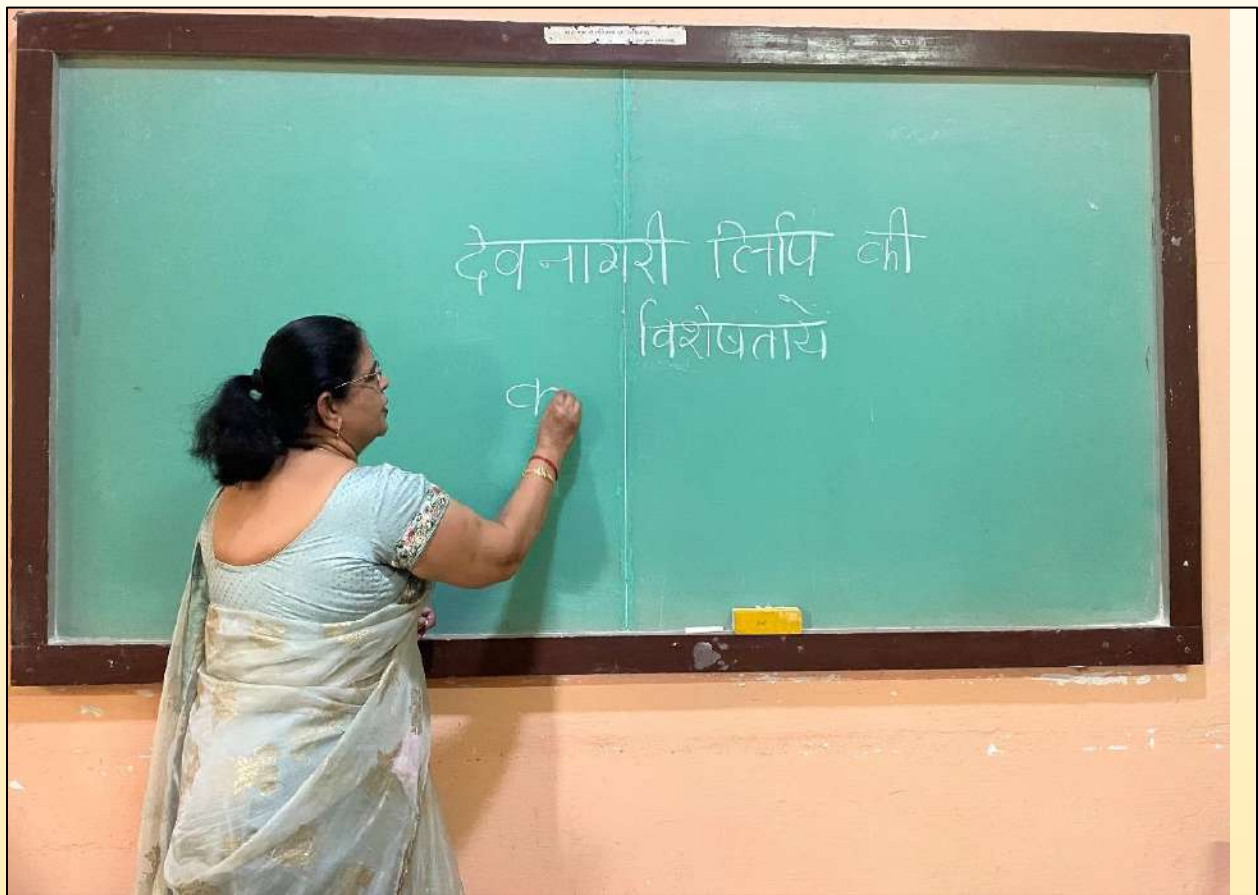 देवनागरी लिपि की
विशेषतायें
क